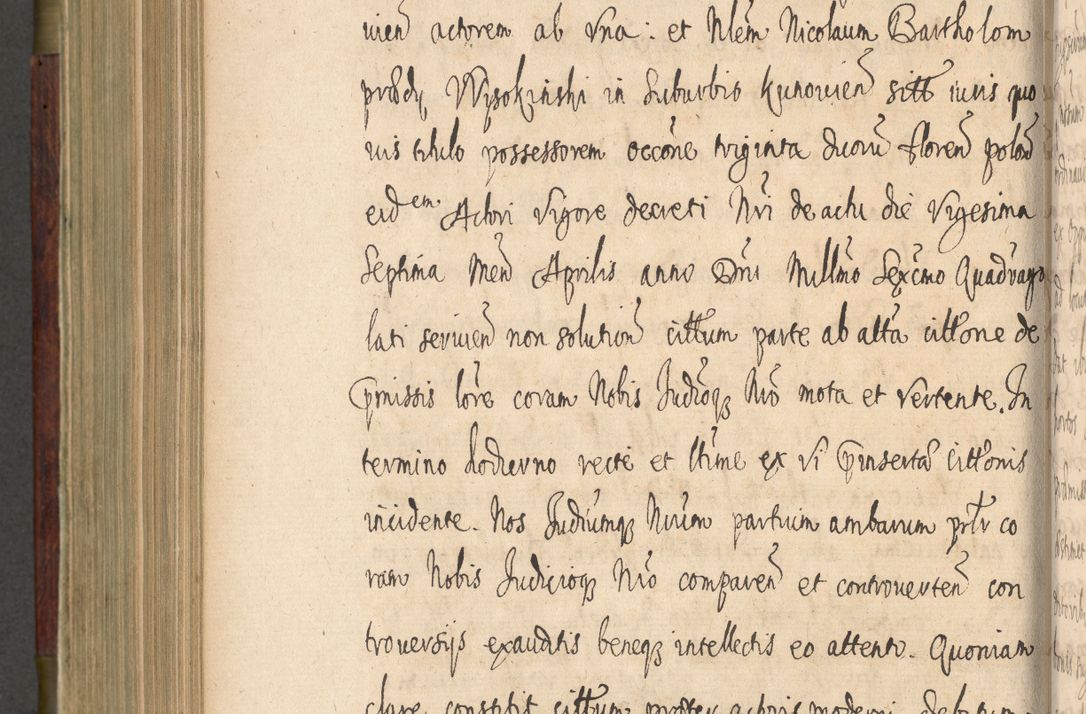 uien actorem ab Vna: et Nlem Nicolaum Bartholom
prædy Wysokinski in Suburbio Kunouien sitt iuris quo
uis titulo possessorem occõne triginta duorũ floren polon
eidem Actori vigore decreti Nri de actu die Vigesima
Septima Men Aprilis anno Dni Millmo Sexcmo Quadrage
lati seruien non solution cittum parte ab alta cittone de
pmissis lore coram Nobis Judioq Nro mota et vertente. In
termino hodierno recte et ltime ex vi pinserta Cittonis
incidente. Nos Judiumq Nrum partium ambarum prltr co
ram Nobis Judicioq Nro comparen et controuerten con
trouersijs exauditis beneq intellectis eo attento. Quoniam
clare constitit cittum actoris moderni